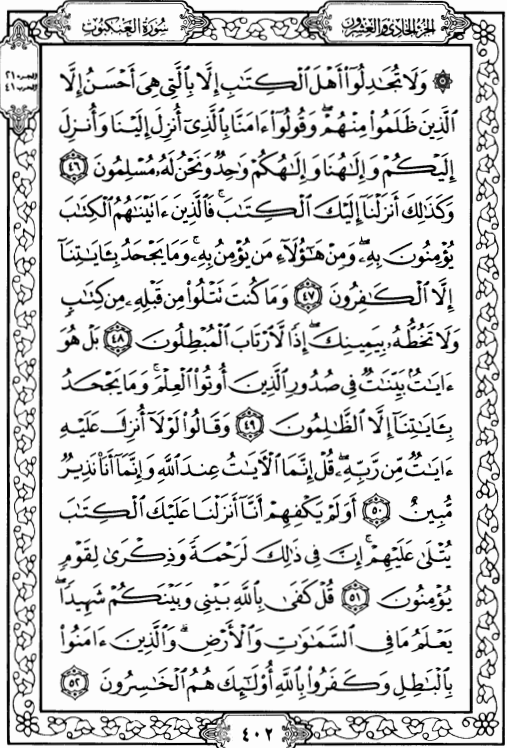 سُورَةُ العَنكَبُوتِ
الجُزءُ الحَادِي وَالعِشرُونَ
الجزء ٢١
الحزب ٤١
۞ وَلَا تُجَٰدِلُوٓا۟ أَهْلَ ٱلْكِتَٰبِ إِلَّا بِٱلَّتِى هِىَ أَحْسَنُ إِلَّا
ٱلَّذِينَ ظَلَمُوا۟ مِنْهُمْ ۖ وَقُولُوٓا۟ ءَامَنَّا بِٱلَّذِىٓ أُنزِلَ إِلَيْنَا وَأُنزِلَ
إِلَيْكُمْ وَإِلَٰهُنَا وَإِلَٰهُكُمْ وَٰحِدٌ وَنَحْنُ لَهُۥ مُسْلِمُونَ ٤٦
وَكَذَٰلِكَ أَنزَلْنَآ إِلَيْكَ ٱلْكِتَٰبَ ۚ فَٱلَّذِينَ ءَاتَيْنَٰهُمُ ٱلْكِتَٰبَ
يُؤْمِنُونَ بِهِۦ ۖ وَمِنْ هَٰٓؤُلَآءِ مَن يُؤْمِنُ بِهِۦ ۚ وَمَا يَجْحَدُ بِـَٔايَٰتِنَآ
إِلَّا ٱلْكَٰفِرُونَ ٤٧ وَمَا كُنتَ تَتْلُوا۟ مِن قَبْلِهِۦ مِن كِتَٰبٍ
وَلَا تَخُطُّهُۥ بِيَمِينِكَ ۖ إِذًا لَّٱرْتَابَ ٱلْمُبْطِلُونَ ٤٨ بَلْ هُوَ
ءَايَٰتٌۢ بَيِّنَٰتٌ فِى صُدُورِ ٱلَّذِينَ أُوتُوا۟ ٱلْعِلْمَ ۚ وَمَا يَجْحَدُ
بِـَٔايَٰتِنَآ إِلَّا ٱلظَّٰلِمُونَ ٤٩ وَقَالُوا۟ لَوْلَآ أُنزِلَ عَلَيْهِ
ءَايَٰتٌ مِّن رَّبِّهِۦ ۖ قُلْ إِنَّمَا ٱلْءَايَٰتُ عِندَ ٱللَّهِ وَإِنَّمَآ أَنَا۠ نَذِيرٌ
مُّبِينٌ ٥٠ أَوَلَمْ يَكْفِهِمْ أَنَّآ أَنزَلْنَا عَلَيْكَ ٱلْكِتَٰبَ
يُتْلَىٰ عَلَيْهِمْ ۚ إِنَّ فِى ذَٰلِكَ لَرَحْمَةً وَذِكْرَىٰ لِقَوْمٍ
يُؤْمِنُونَ ٥١ قُلْ كَفَىٰ بِٱللَّهِ بَيْنِى وَبَيْنَكُمْ شَهِيدًا ۖ
يَعْلَمُ مَا فِى ٱلسَّمَٰوَٰتِ وَٱلْأَرْضِ ۗ وَٱلَّذِينَ ءَامَنُوا۟
بِٱلْبَٰطِلِ وَكَفَرُوا۟ بِٱللَّهِ أُو۟لَٰٓئِكَ هُمُ ٱلْخَٰسِرُونَ ٥٢
٤٠٢